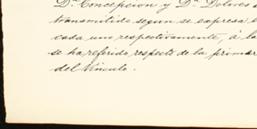 Dª Concepcion y Dª Dolores
transmitido segun se expresa
cada una respectivamente, á la
se ha referido respecto de la primera
del Vínculo.